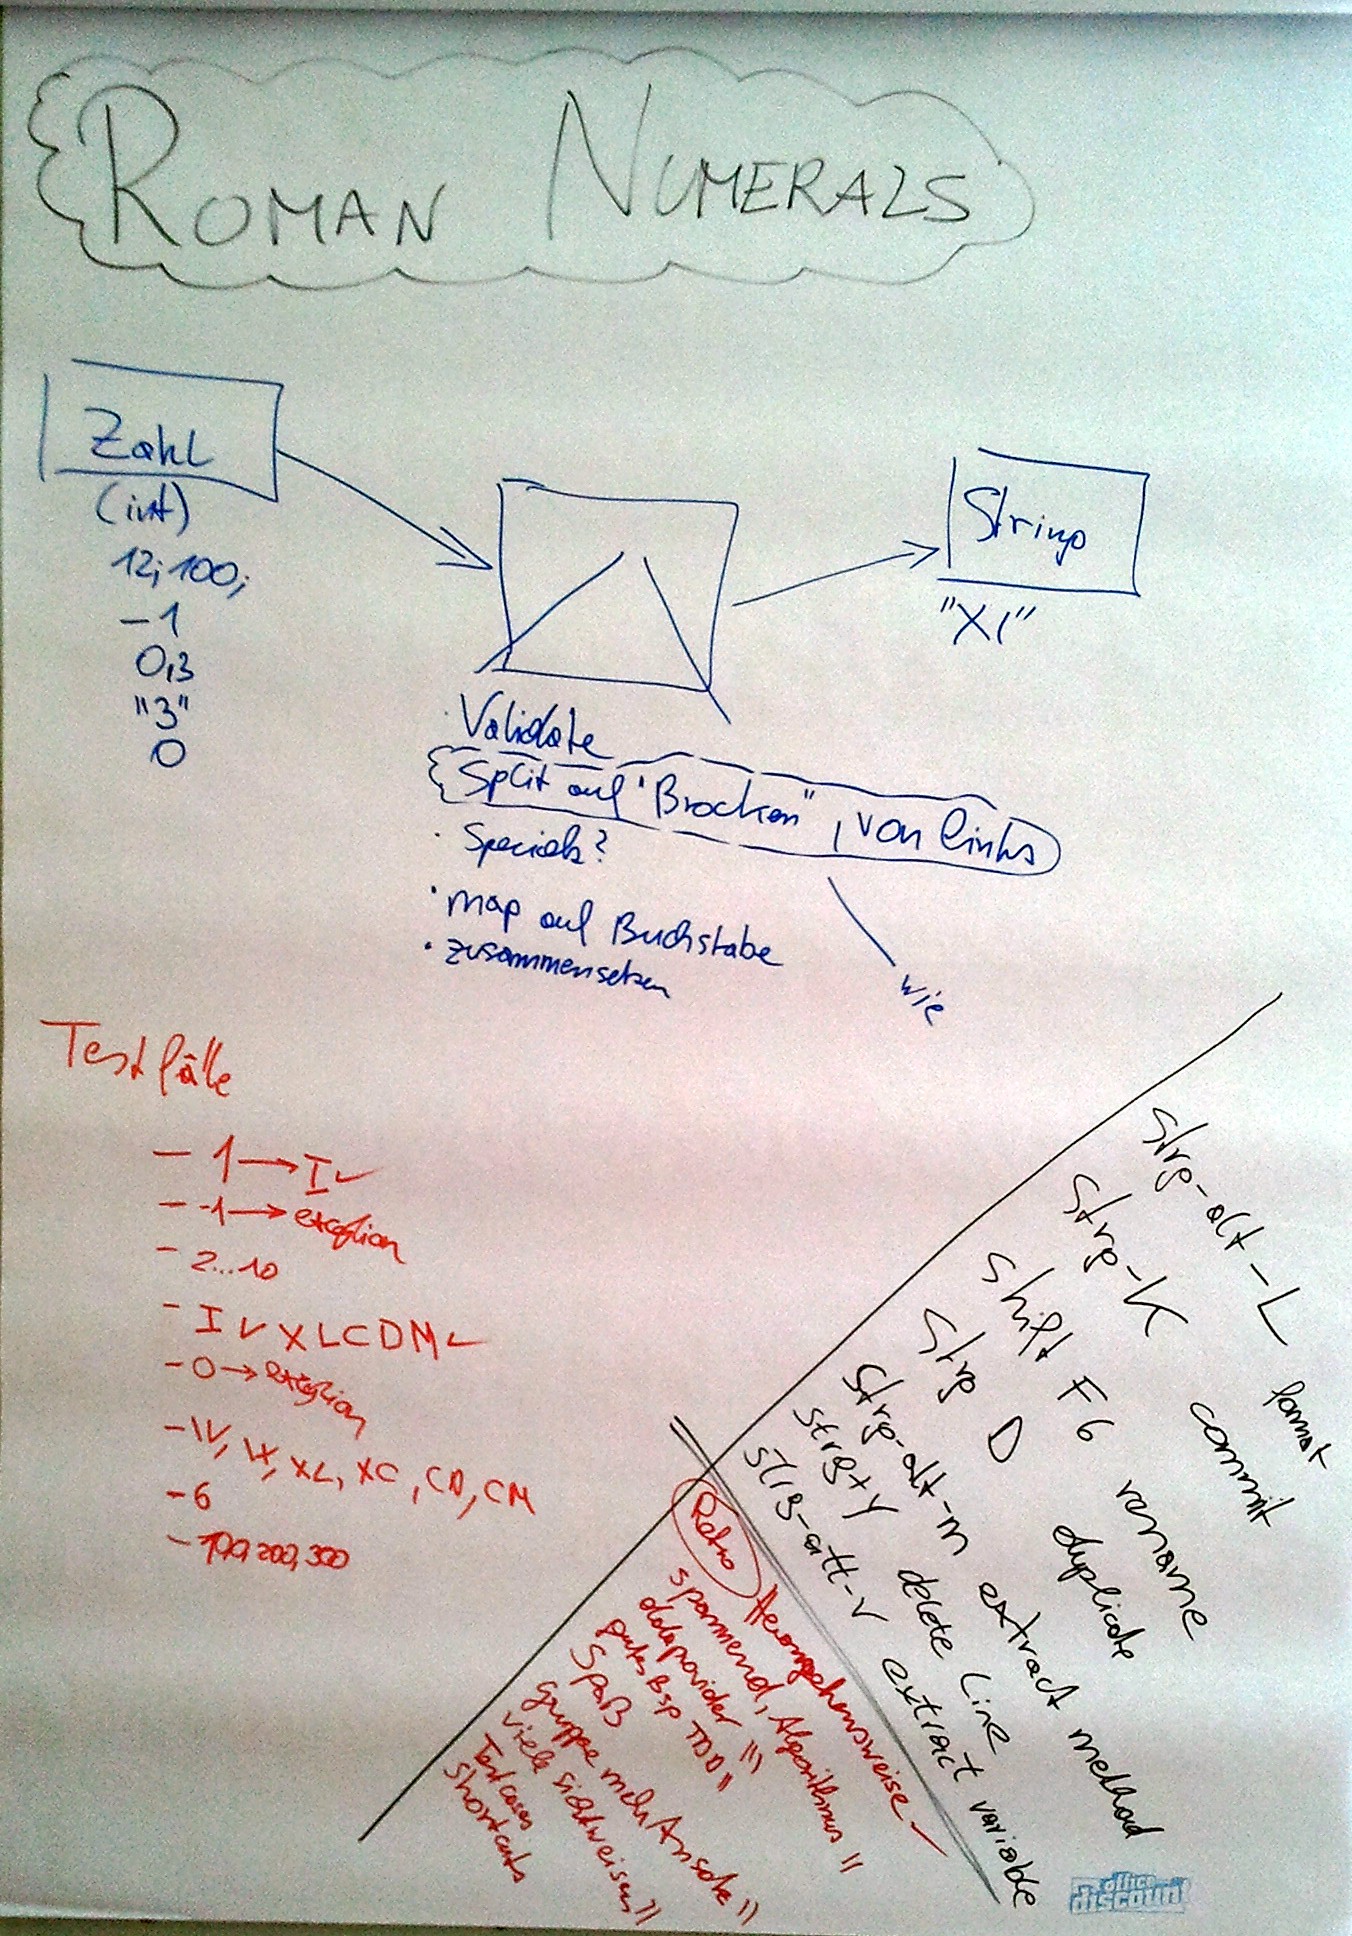 ROMAN NUMERALS
Zahl
(int)
12; 100;
-1
0,3
"3"
0
String
"XI"
· Validate
Split auf "Brocken", von links
· Specials?
· map auf Buchstabe
· zusammensetzen
wie
Testfälle
- 1 → I ✓
- -1 → exception
- 2...10
- I V X L C D M ✓
- 0 → exception
- IV, IX, XL, XC, CD, CM
- 6
- 100, 200, 300
Strg-alt-L format
Strg-K commit
Shift F6 rename
Strg D duplicate
Strg-alt-m extract method
strg+y delete line
strg-alt-v extract variable
Retro
Herangehensweise -
spannend, Algorithmus ||
dataprovider |||
gutes Bsp TDD ||
Spaß
gruppe mehr Ansätze ||
viele sichtweisen ||
Testcases
shortcuts
office
discount